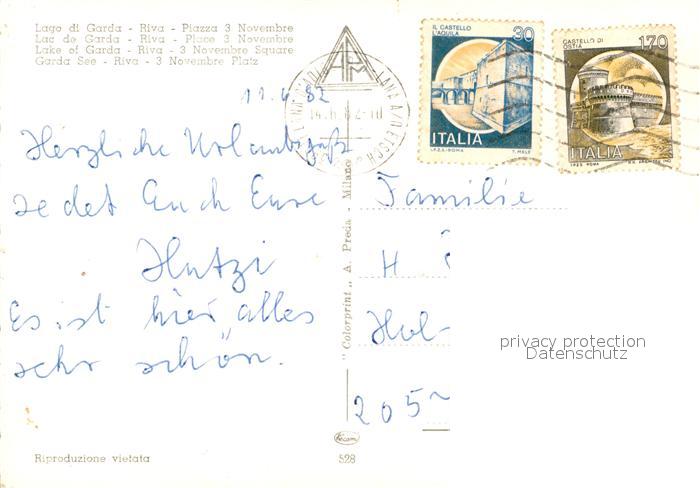 Lago di Garda - Riva - Piazza 3 Novembre
Lac de Garda - Riva - Place 3 Novembre
Lake of Garda - Riva - 3 Novembre Square
Garda See - Riva - 3 Novembre Platz
11.6.82
Herzliche Urlaubsgrüß
sedet Euch Eure
Hutzi
Es ist hier alles
sehr schön.
Riproduzione vietata
LANA A/D ETSCH
14.6.82-10
IL CASTELLO
L'AQUILA
30
ITALIA
I.P.Z.S.-ROMA
CASTELLO DI
OSTIA
170
ITALIA
I.P.Z.S. ROMA
"Colorprint" A. Preda - Milano
Familie
H
Hol-
205
privacy protection
Datenschutz
528